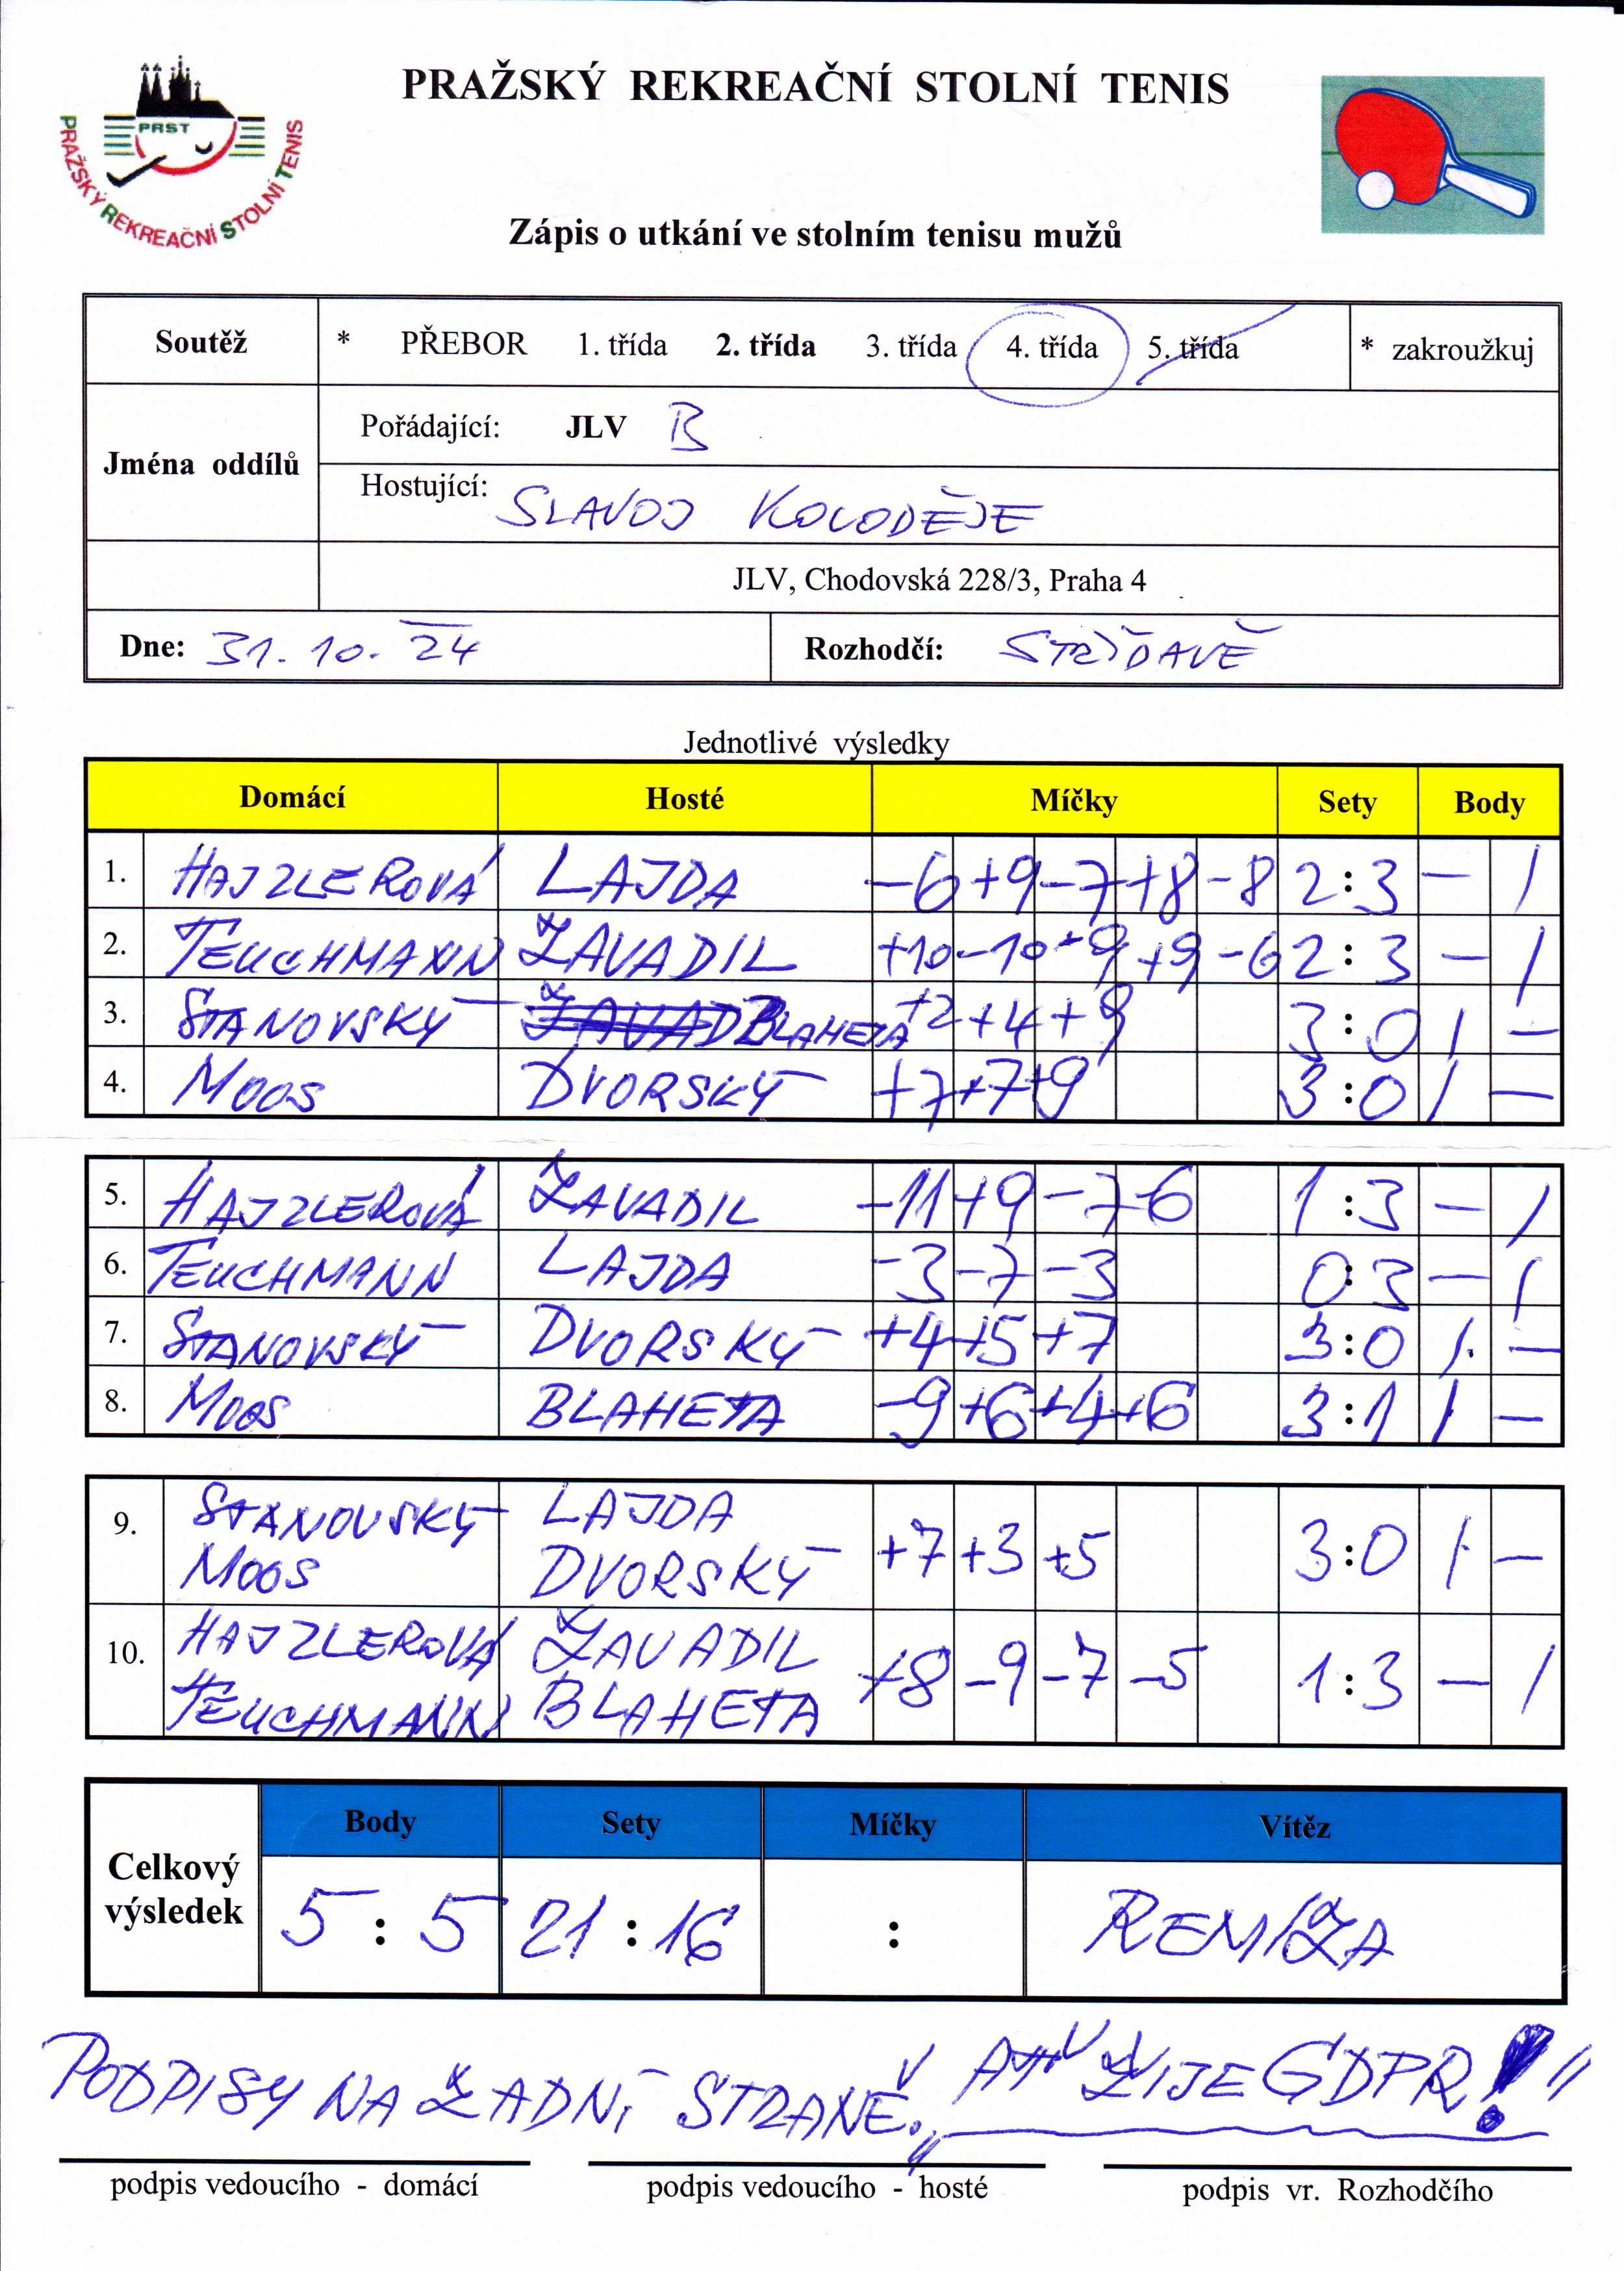 PRAŽSKÝ REKREAČNÍ STOLNÍ TENIS
PRST
PRAŽSKÝ REKREAČNÍ STOLNÍ TENIS
Zápis o utkání ve stolním tenisu mužů
Soutěž * PŘEBOR 1. třída 2. třída 3. třída 4. třída 5. třída * zakroužkuj
Jména oddílů
Pořádající: JLV B
Hostující: SLAVOJ KOLODĚJE
JLV, Chodovská 228/3, Praha 4
Dne: 31.10.24 Rozhodčí: STŘÍDAVĚ
Jednotlivé výsledky
Domácí Hosté Míčky Sety Body
1. HAJZLEROVÁ LAJDA -6 +9 -7 +8 -8 2:3 - 1
2. TEUCHMANN ZAVADIL +10 -10 -9 +9 -6 2:3 - 1
3. STANOVSKÝ BLAHETA +2 +4 +9 3:0 1 -
4. MOOS DVORSKÝ +7 +7 +9 3:0 1 -
5. HAJZLEROVÁ ZAVADIL -11 +9 -7 -6 1:3 - 1
6. TEUCHMANN LAJDA -3 -7 -3 0:3 - 1
7. STANOVSKÝ DVORSKÝ +4 +5 +7 3:0 1 -
8. MOOS BLAHETA -9 +6 +4 +6 3:1 1 -
9. STANOVSKÝ LAJDA
MOOS DVORSKÝ +7 +3 +5 3:0 1 -
10. HAJZLEROVÁ ZAVADIL
TEUCHMANN BLAHETA +8 -9 -7 -5 1:3 - 1
Celkový výsledek
Body Sety Míčky Vítěz
5 : 5 21 : 16 : REMÍZA
PODPISY NA ZADNÍ STRANĚ. AŤ ŽIJE GDPR!
podpis vedoucího - domácí podpis vedoucího - hosté podpis vr. Rozhodčího